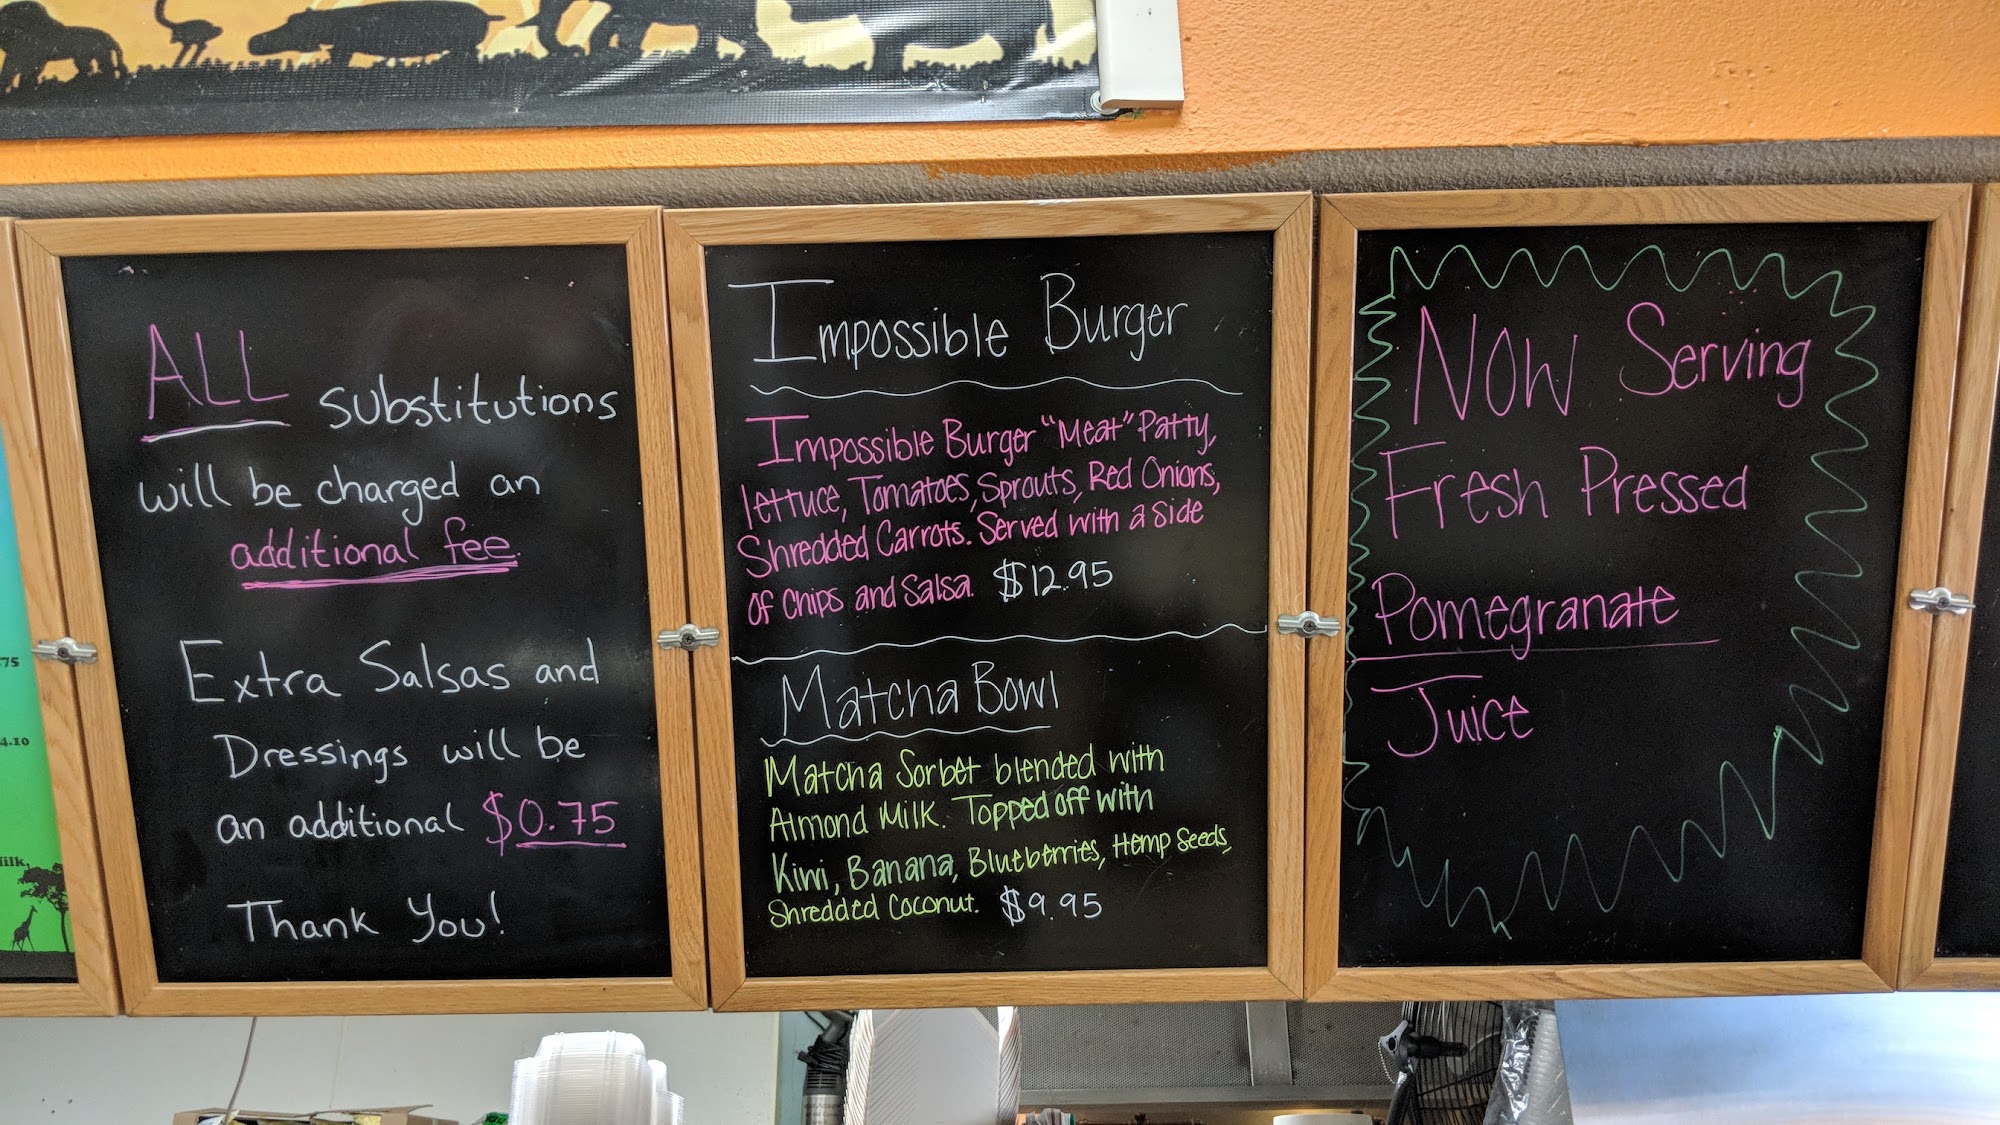 ALL substitutions
will be charged an
additional fee.
Extra Salsas and
Dressings will be
an additional $0.75
Thank You!
Impossible Burger
Impossible Burger "Meat" Patty,
lettuce, Tomatoes, Sprouts, Red Onions,
Shredded Carrots. Served with a side
of chips and Salsa. $12.95
Matcha Bowl
Matcha Sorbet blended with
Almond Milk. Topped off with
Kiwi, Banana, Blueberries, Hemp Seeds,
Shredded Coconut. $9.95
NOW Serving
Fresh Pressed
Pomegranate
Juice
75
4.10